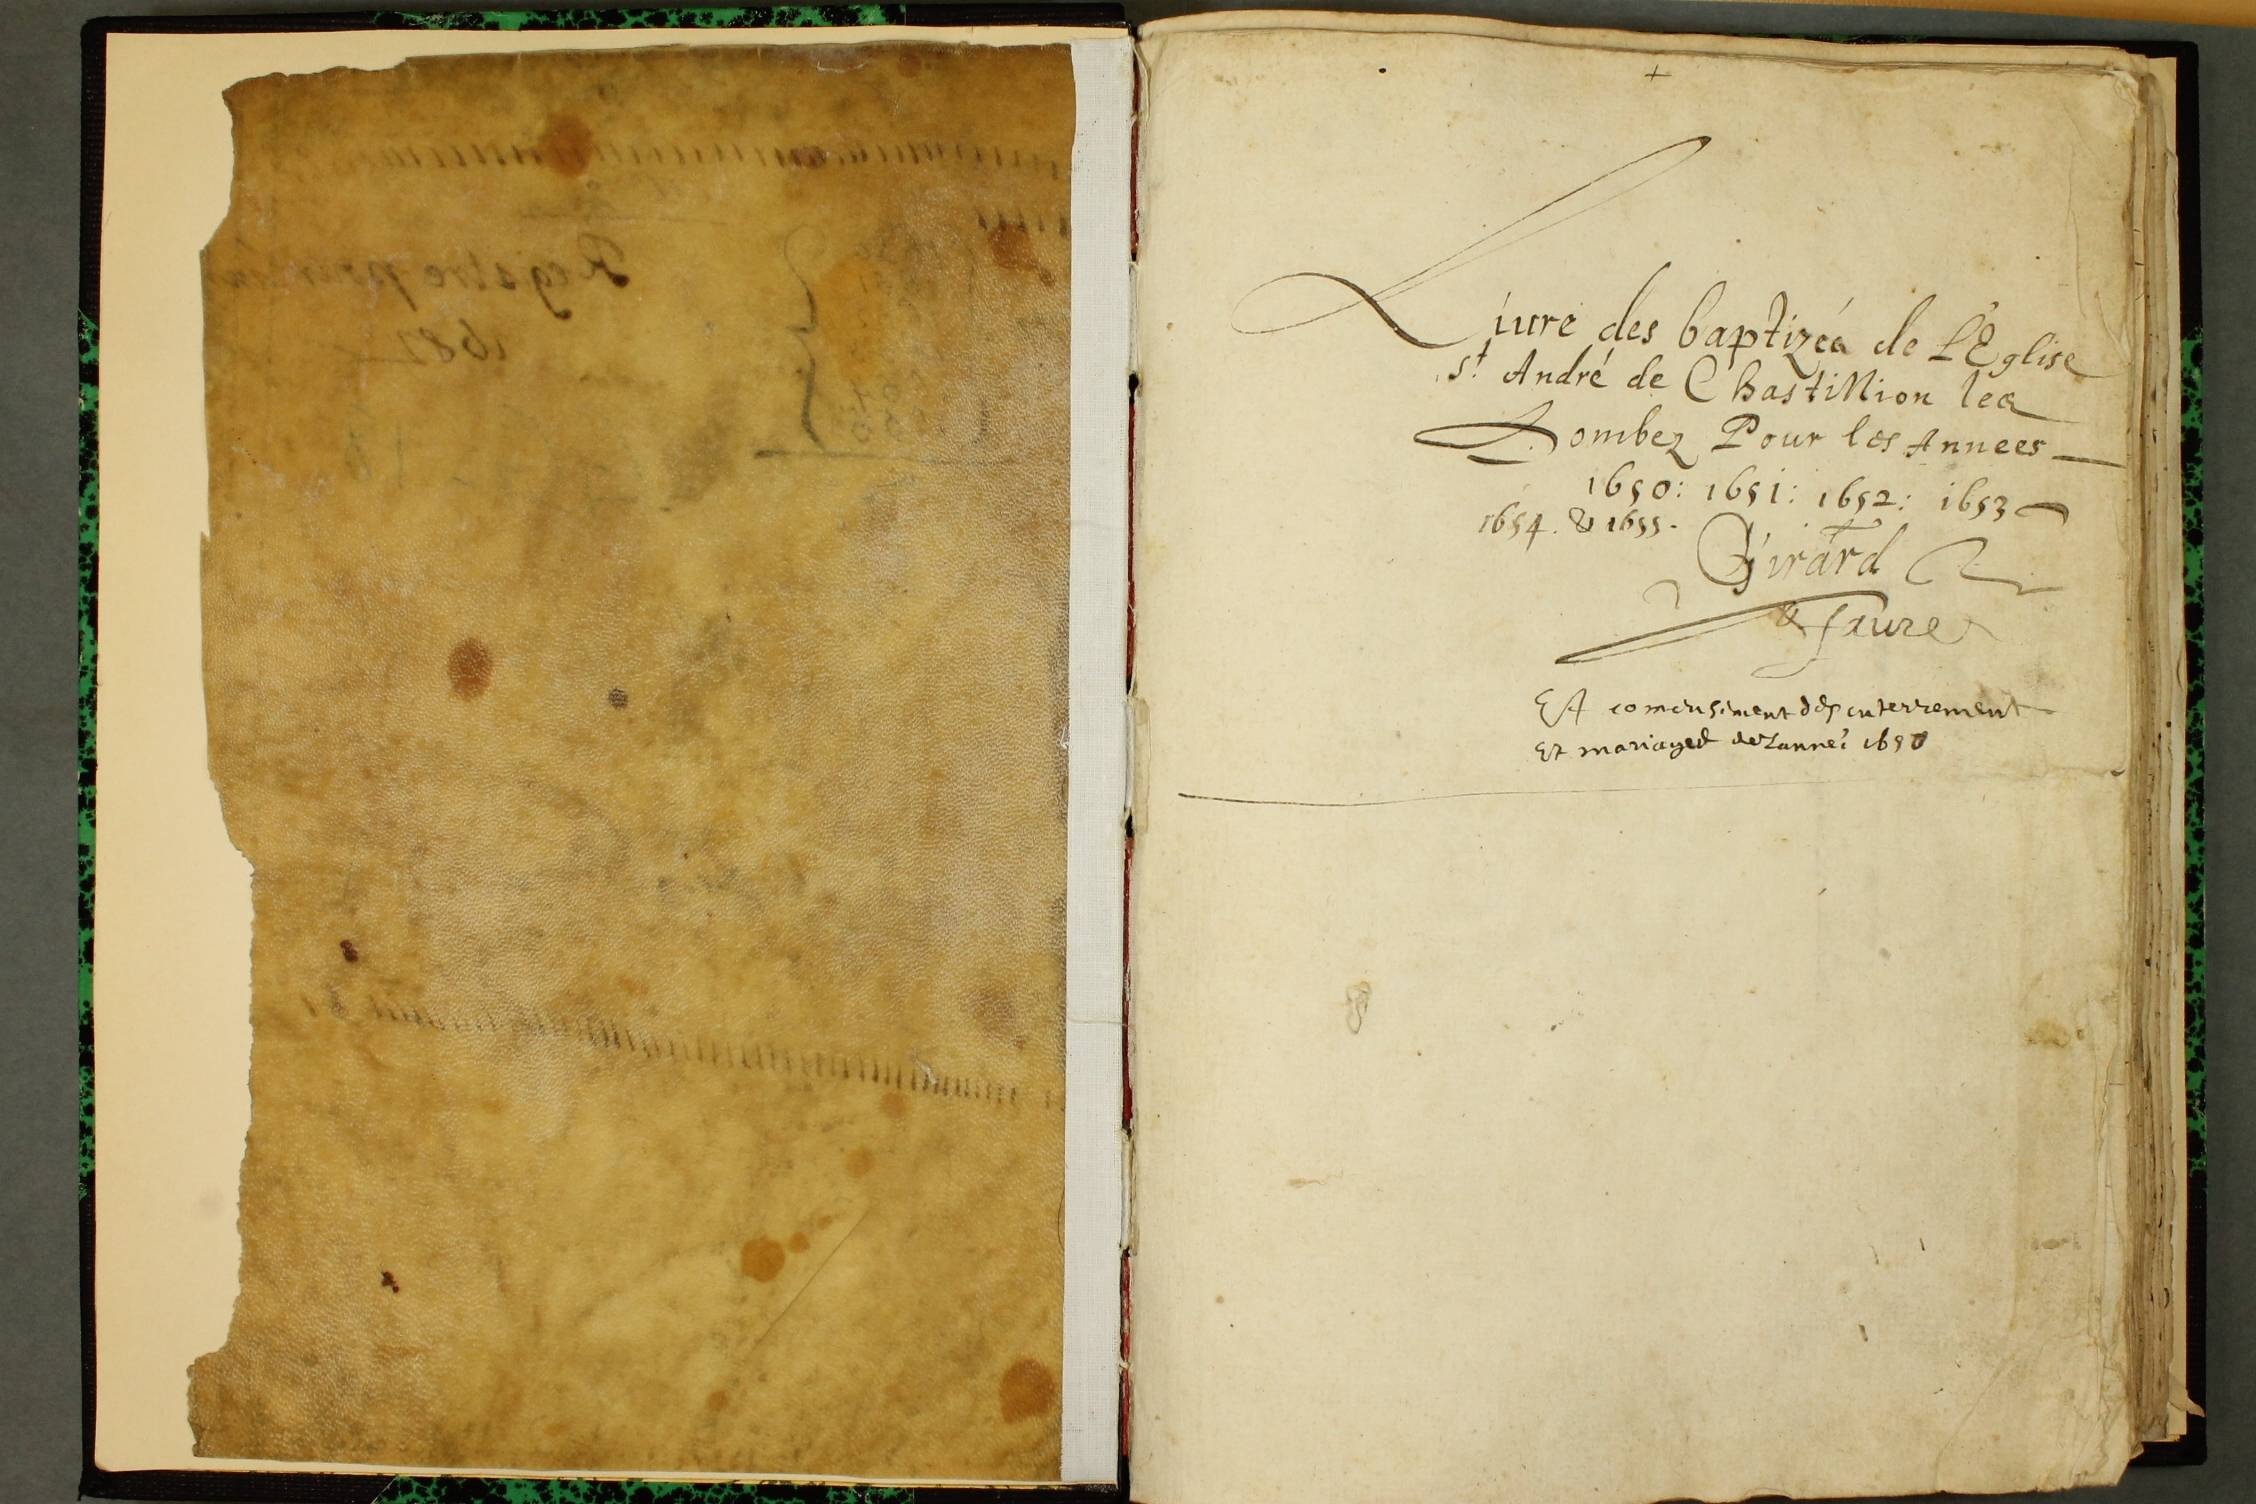 Registre pour
1682
+
Liure des baptizéa de L'Eglise
St André de Chastillion lea
Dombez Pour les Annees
1650: 1651: 1652: 1653
1654. & 1655.
Girard
& faure
Et comensement des enterrement
Et mariages de Lanneé 1650